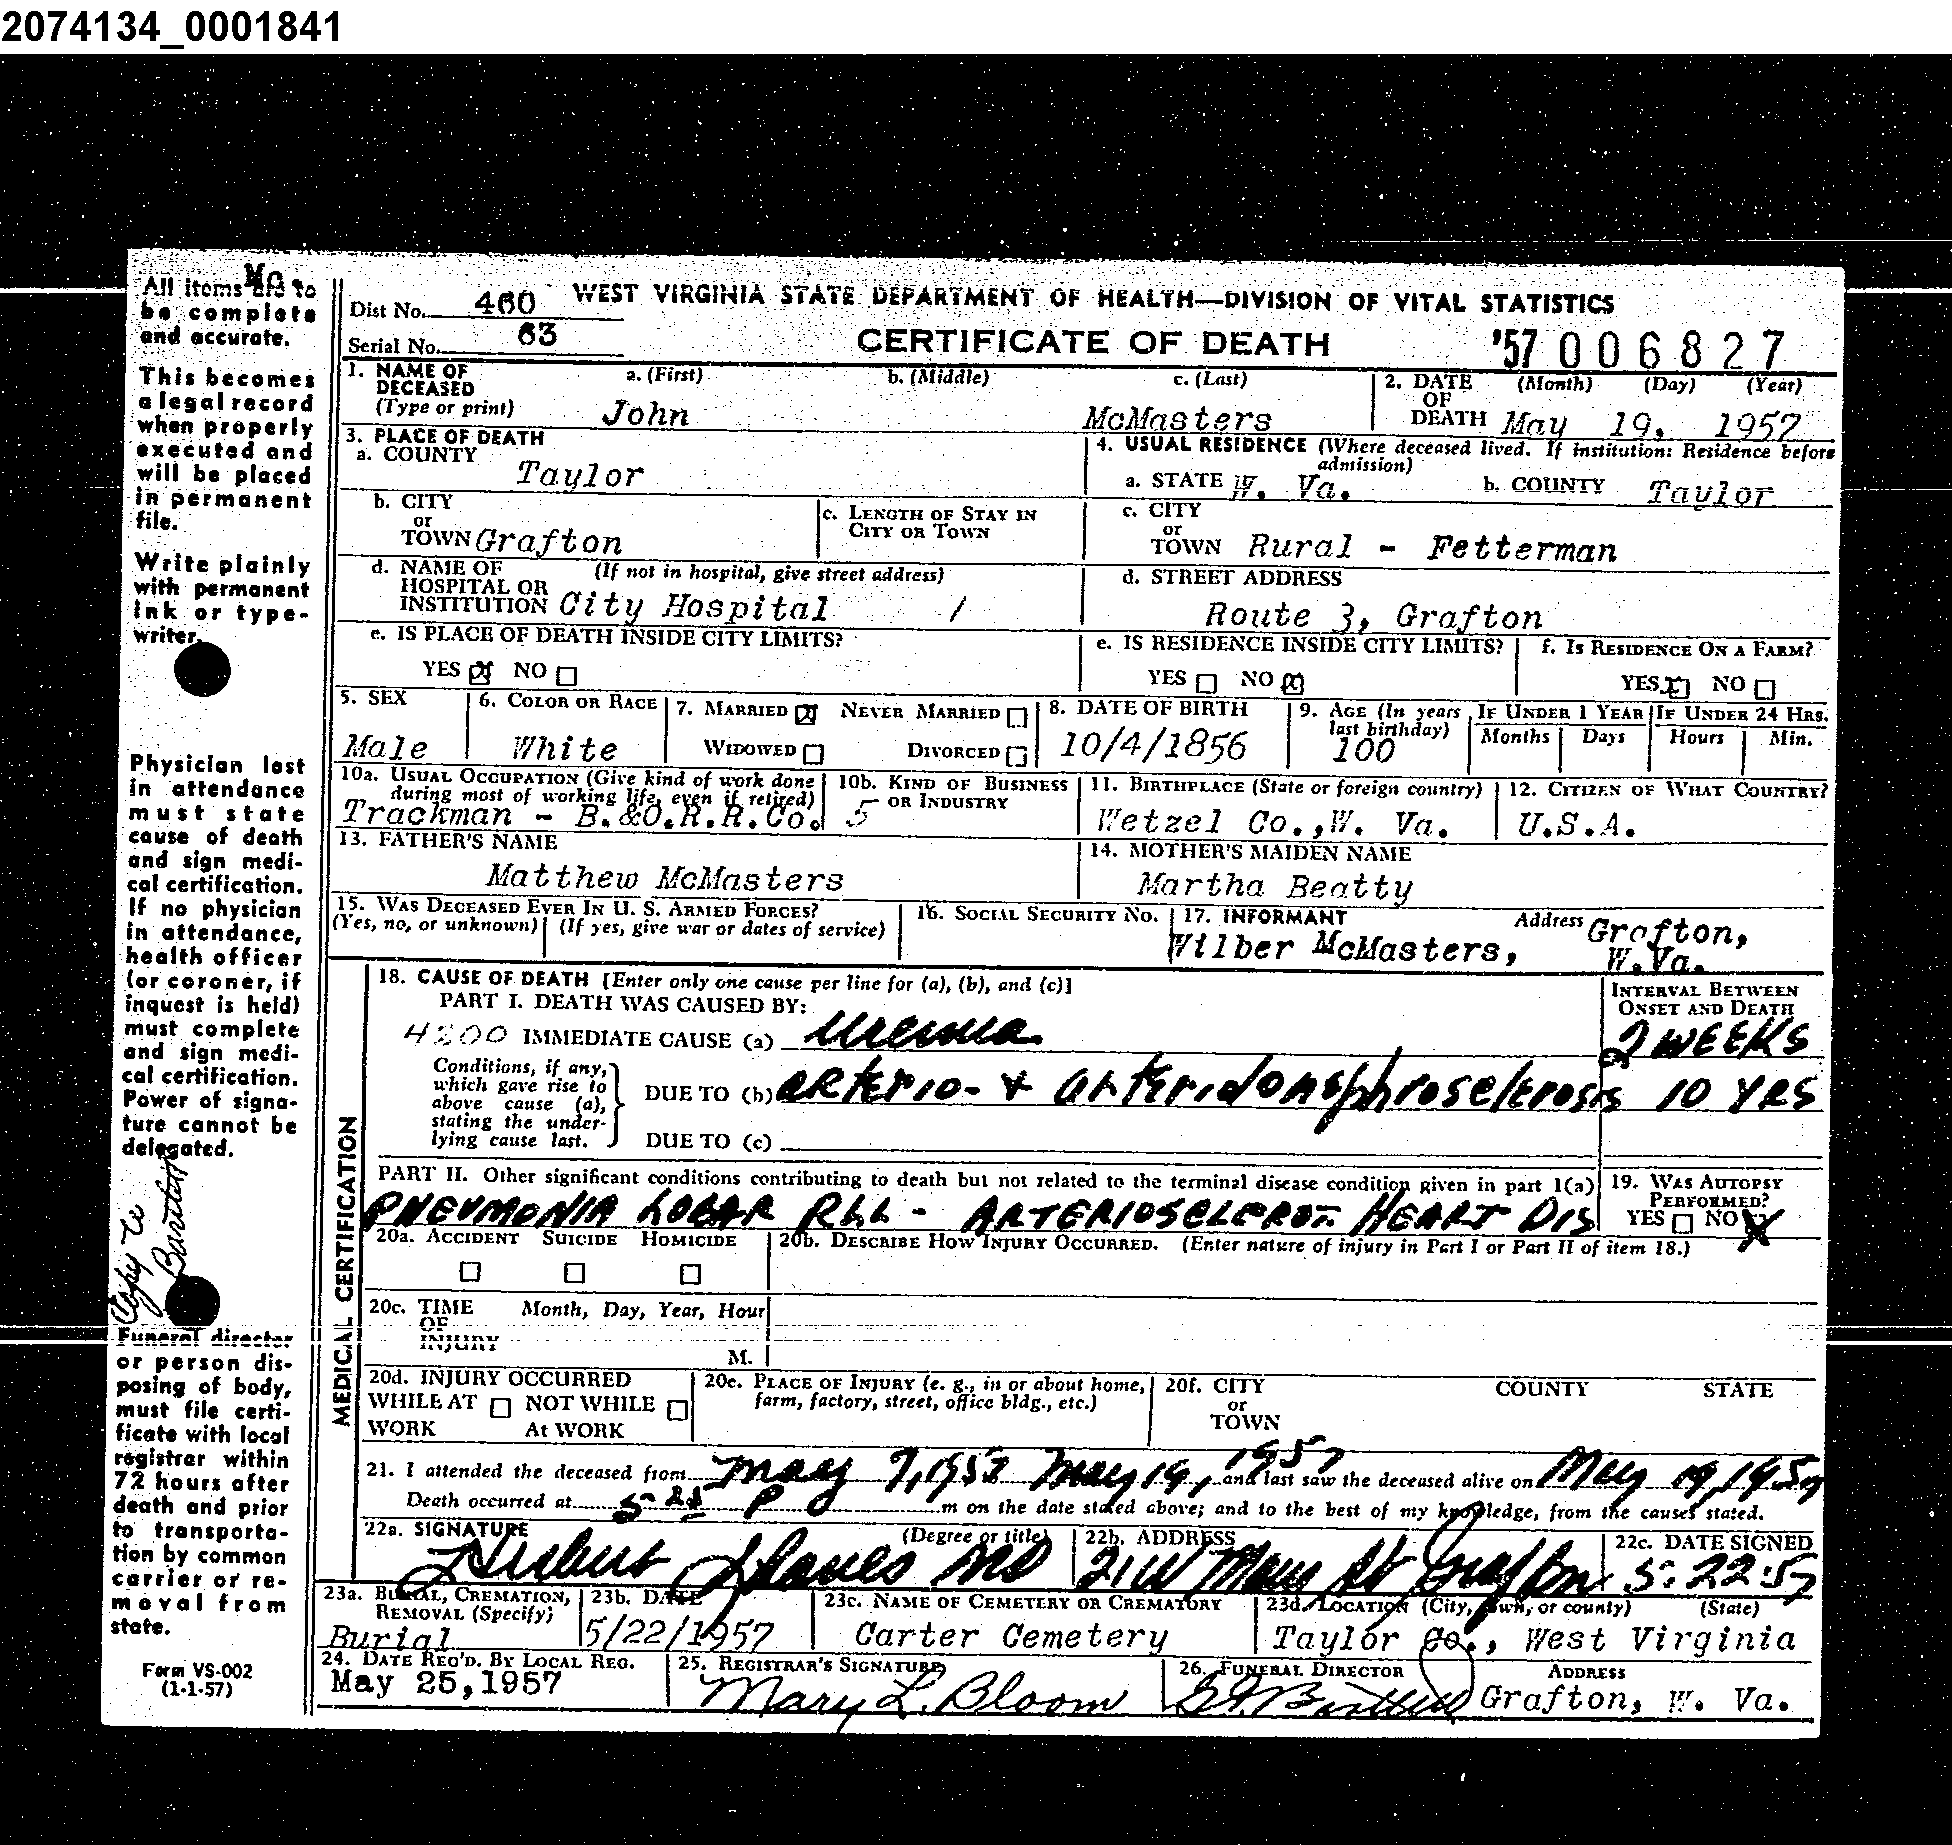 2074134_0001841
Mc
All items are to
be complete
and accurate.
This becomes
a legal record
when properly
executed and
will be placed
in permanent
file.
Write plainly
with permanent
ink or type-
writer.
Physician last
in attendance
must state
cause of death
and sign medi-
cal certification.
If no physician
in attendance,
health officer
(or coroner, if
inquest is held)
must complete
and sign medi-
cal certification.
Power of signa-
ture cannot be
delegated.
Copy to
Bartlett
Funeral director
or person dis-
posing of body,
must file certi-
ficate with local
registrar within
72 hours after
death and prior
to transporta-
tion by common
carrier or re-
moval from
state.
Form VS-002
(1-1-57)
Dist No. 460 WEST VIRGINIA STATE DEPARTMENT OF HEALTH—DIVISION OF VITAL STATISTICS
Serial No. 63 CERTIFICATE OF DEATH '57 006827
1. NAME OF DECEASED (Type or print) a. (First) b. (Middle) c. (Last) 2. DATE OF DEATH (Month) (Day) (Year)
John McMasters May 19, 1957
3. PLACE OF DEATH 4. USUAL RESIDENCE (Where deceased lived. If institution: Residence before admission)
a. COUNTY Taylor a. STATE W. Va. b. COUNTY Taylor
b. CITY or TOWN Grafton c. LENGTH OF STAY IN CITY OR TOWN c. CITY or TOWN Rural - Fetterman
d. NAME OF HOSPITAL OR INSTITUTION (If not in hospital, give street address) City Hospital / d. STREET ADDRESS Route 3, Grafton
e. IS PLACE OF DEATH INSIDE CITY LIMITS? e. IS RESIDENCE INSIDE CITY LIMITS? f. IS RESIDENCE ON A FARM?
YES X NO YES NO X YES X NO
5. SEX 6. COLOR OR RACE 7. MARRIED X NEVER MARRIED 8. DATE OF BIRTH 9. AGE (In years last birthday) IF UNDER 1 YEAR IF UNDER 24 HRS.
Male White WIDOWED DIVORCED 10/4/1856 100 Months Days Hours Min.
10a. USUAL OCCUPATION (Give kind of work done during most of working life, even if retired) 10b. KIND OF BUSINESS OR INDUSTRY 11. BIRTHPLACE (State or foreign country) 12. CITIZEN OF WHAT COUNTRY?
Trackman - B.&O.R.R.Co. 5 Wetzel Co.,W. Va. U.S.A.
13. FATHER'S NAME 14. MOTHER'S MAIDEN NAME
Matthew McMasters Martha Beatty
15. WAS DECEASED EVER IN U. S. ARMED FORCES? 16. SOCIAL SECURITY NO. 17. INFORMANT Address Grafton,
(Yes, no, or unknown) (If yes, give war or dates of service) Wilber McMasters, W.Va.
MEDICAL CERTIFICATION
18. CAUSE OF DEATH [Enter only one cause per line for (a), (b), and (c)] INTERVAL BETWEEN ONSET AND DEATH
PART I. DEATH WAS CAUSED BY:
4200 IMMEDIATE CAUSE (a) Uremia 2 WEEKS
Conditions, if any, which gave rise to above cause (a), stating the underlying cause last.
DUE TO (b) arterio- + arteriolonephrosclerosis 10 YRS
DUE TO (c)
PART II. Other significant conditions contributing to death but not related to the terminal disease condition given in part 1(a) 19. WAS AUTOPSY PERFORMED?
PNEUMONIA LOBAR RLL - ARTERIOSCLEROT. HEART DIS YES NO X
20a. ACCIDENT SUICIDE HOMICIDE 20b. DESCRIBE HOW INJURY OCCURRED. (Enter nature of injury in Part I or Part II of item 18.)
20c. TIME OF INJURY Month, Day, Year, Hour
M.
20d. INJURY OCCURRED 20e. PLACE OF INJURY (e. g., in or about home, farm, factory, street, office bldg., etc.) 20f. CITY or TOWN COUNTY STATE
WHILE AT WORK NOT WHILE At WORK
21. I attended the deceased from May 7, 1957 May 19, 1957 and last saw the deceased alive on May 19, 1957
Death occurred at P m on the date stated above; and to the best of my knowledge, from the causes stated.
22a. SIGNATURE (Degree or title) 22b. ADDRESS 22c. DATE SIGNED
MD Grafton 5-22-57
23a. BURIAL, CREMATION, REMOVAL (Specify) 23b. DATE 23c. NAME OF CEMETERY OR CREMATORY 23d. LOCATION (City, town, or county) (State)
Burial 5/22/1957 Carter Cemetery Taylor Co., West Virginia
24. DATE REC'D. BY LOCAL REG. 25. REGISTRAR'S SIGNATURE 26. FUNERAL DIRECTOR ADDRESS
May 25,1957 Mary L. Bloom Grafton, W. Va.